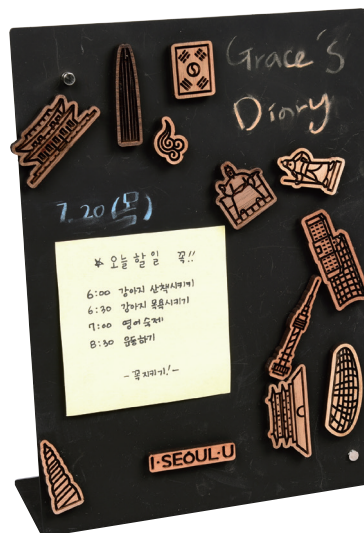 Grace's
Diary
7.20 (목)
* 오늘 할 일 꼭!!
6:00 강아지 산책시키기
6:30 강아지 목욕시키기
7:00 영어숙제
8:30 운동하기
- 꼭 지키기! -
I·SEOUL·U